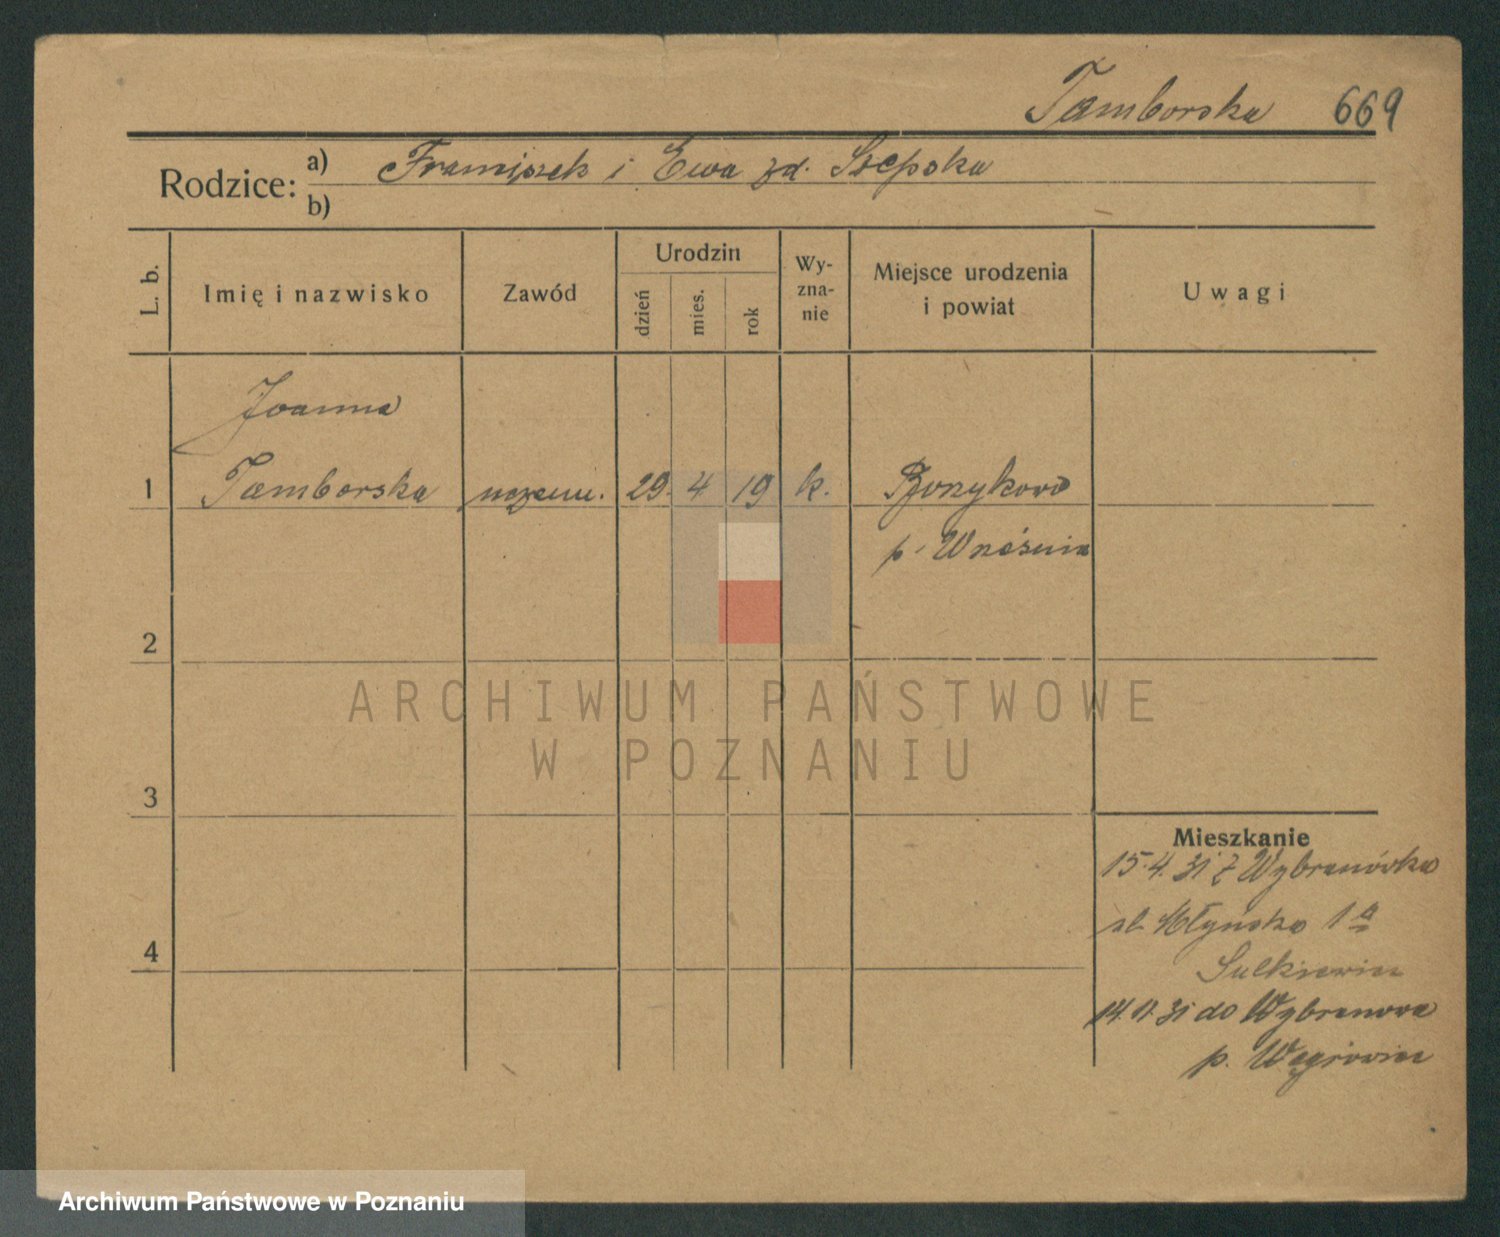 Tamborska 669
Rodzice: a) Franciszek i Ewa zd. Szepska
b)
L. b.
Imię i nazwisko
Zawód
Urodzin
dzień
mies.
rok
Wy-
zna-
nie
Miejsce urodzenia
i powiat
Uwagi
Joanna
1 Tamborska uczenn. 29. 4 19 k.
p. Września
2
3
4
Mieszkanie
15.4.31 z Wybranówka
ul. Młyńska 1a
14. 11. 31 do Wybranowa
p. Wągrowiec
ARCHIWUM PAŃSTWOWE
W POZNANIU
Archiwum Państwowe w Poznaniu